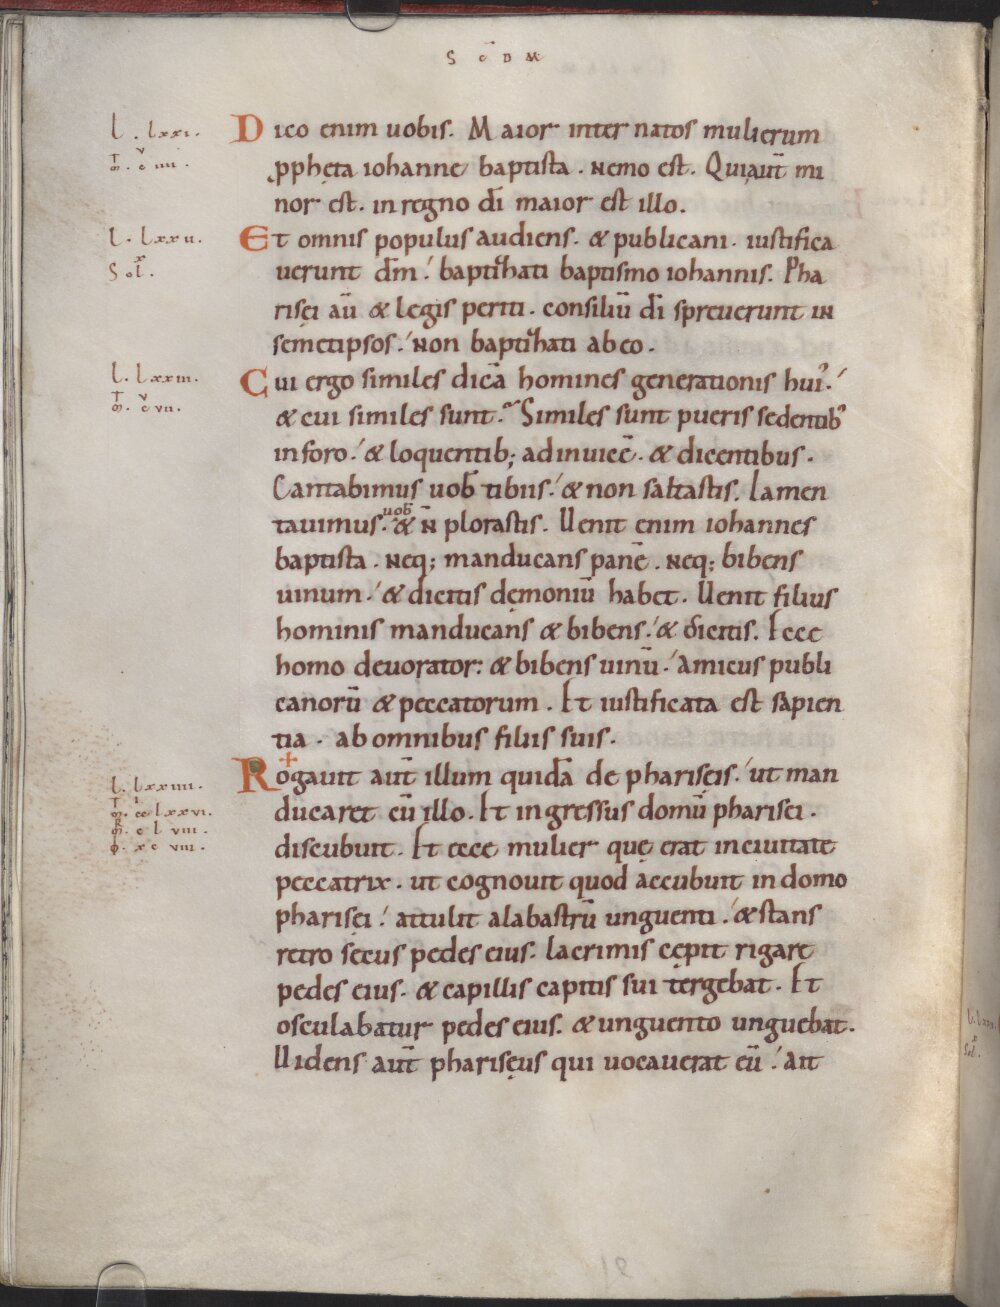 S̄ C D M
L . lxxi .
T̄ . V̄
M̄ . c iiii .
Dico enim uobis. Maior inter natos mulierum
ppheta iohanne baptista . nemo est. Qui aut̄ mi
nor est. in regno dī maior est illo.
L . lxxii .
Sol .
Et omnis populus audiens. & publicani. iustifica
uerunt dm̄ . baptizati baptismo iohannis. Pha
risęi aū & legis periti. consiliū dī spreuerunt in
semetipsos. non baptizati ab eo.
L . lxxiii .
T̄ V̄
M̄ . c vii .
Cui ergo similes dicā homines generationis hui᾽.
& cui similes sunt. Similes sunt pueris sedentib᾽
in foro. & loquentib; adinuicē. & dicentibus.
Cantabimus uob̄ tibiis. & non saltastis. Lamen
tauimus. uob̄ & n̄ plorastis. Uenit enim iohannes
baptista . neq; manducans panē . neq; bibens
uinum. & dicitis dęmoniū habet. Uenit filius
hominis manducans & bibens. & dicitis. Ecce
homo deuorator: & bibens uinū. amicus publi
canorū & peccatorum . Et iustificata est sapien
tia . ab omnibus filiis suis.
L . lxxiiii .
T̄ . I
M̄ . cc lxxvi .
R
M̄ . c l viii .
ϕ . xc viii .
Rogauit aut̄ illum quidā de pharisęis. ut man
ducaret cū illo. Et ingressus domū pharisei .
discubuit. Et ecce mulier quę erat in ciuitate
peccatrix. ut cognouit quod accubuit in domo
pharisęi . attulit alabastrū unguenti . & stans
retro secus pedes eius. lacrimis cępit rigare
pedes eius. & capillis capitis sui tergebat. Et
osculabatur pedes eius. & unguento unguebat.
Uidens aut̄ pharisęus qui uocauerat eū . ait